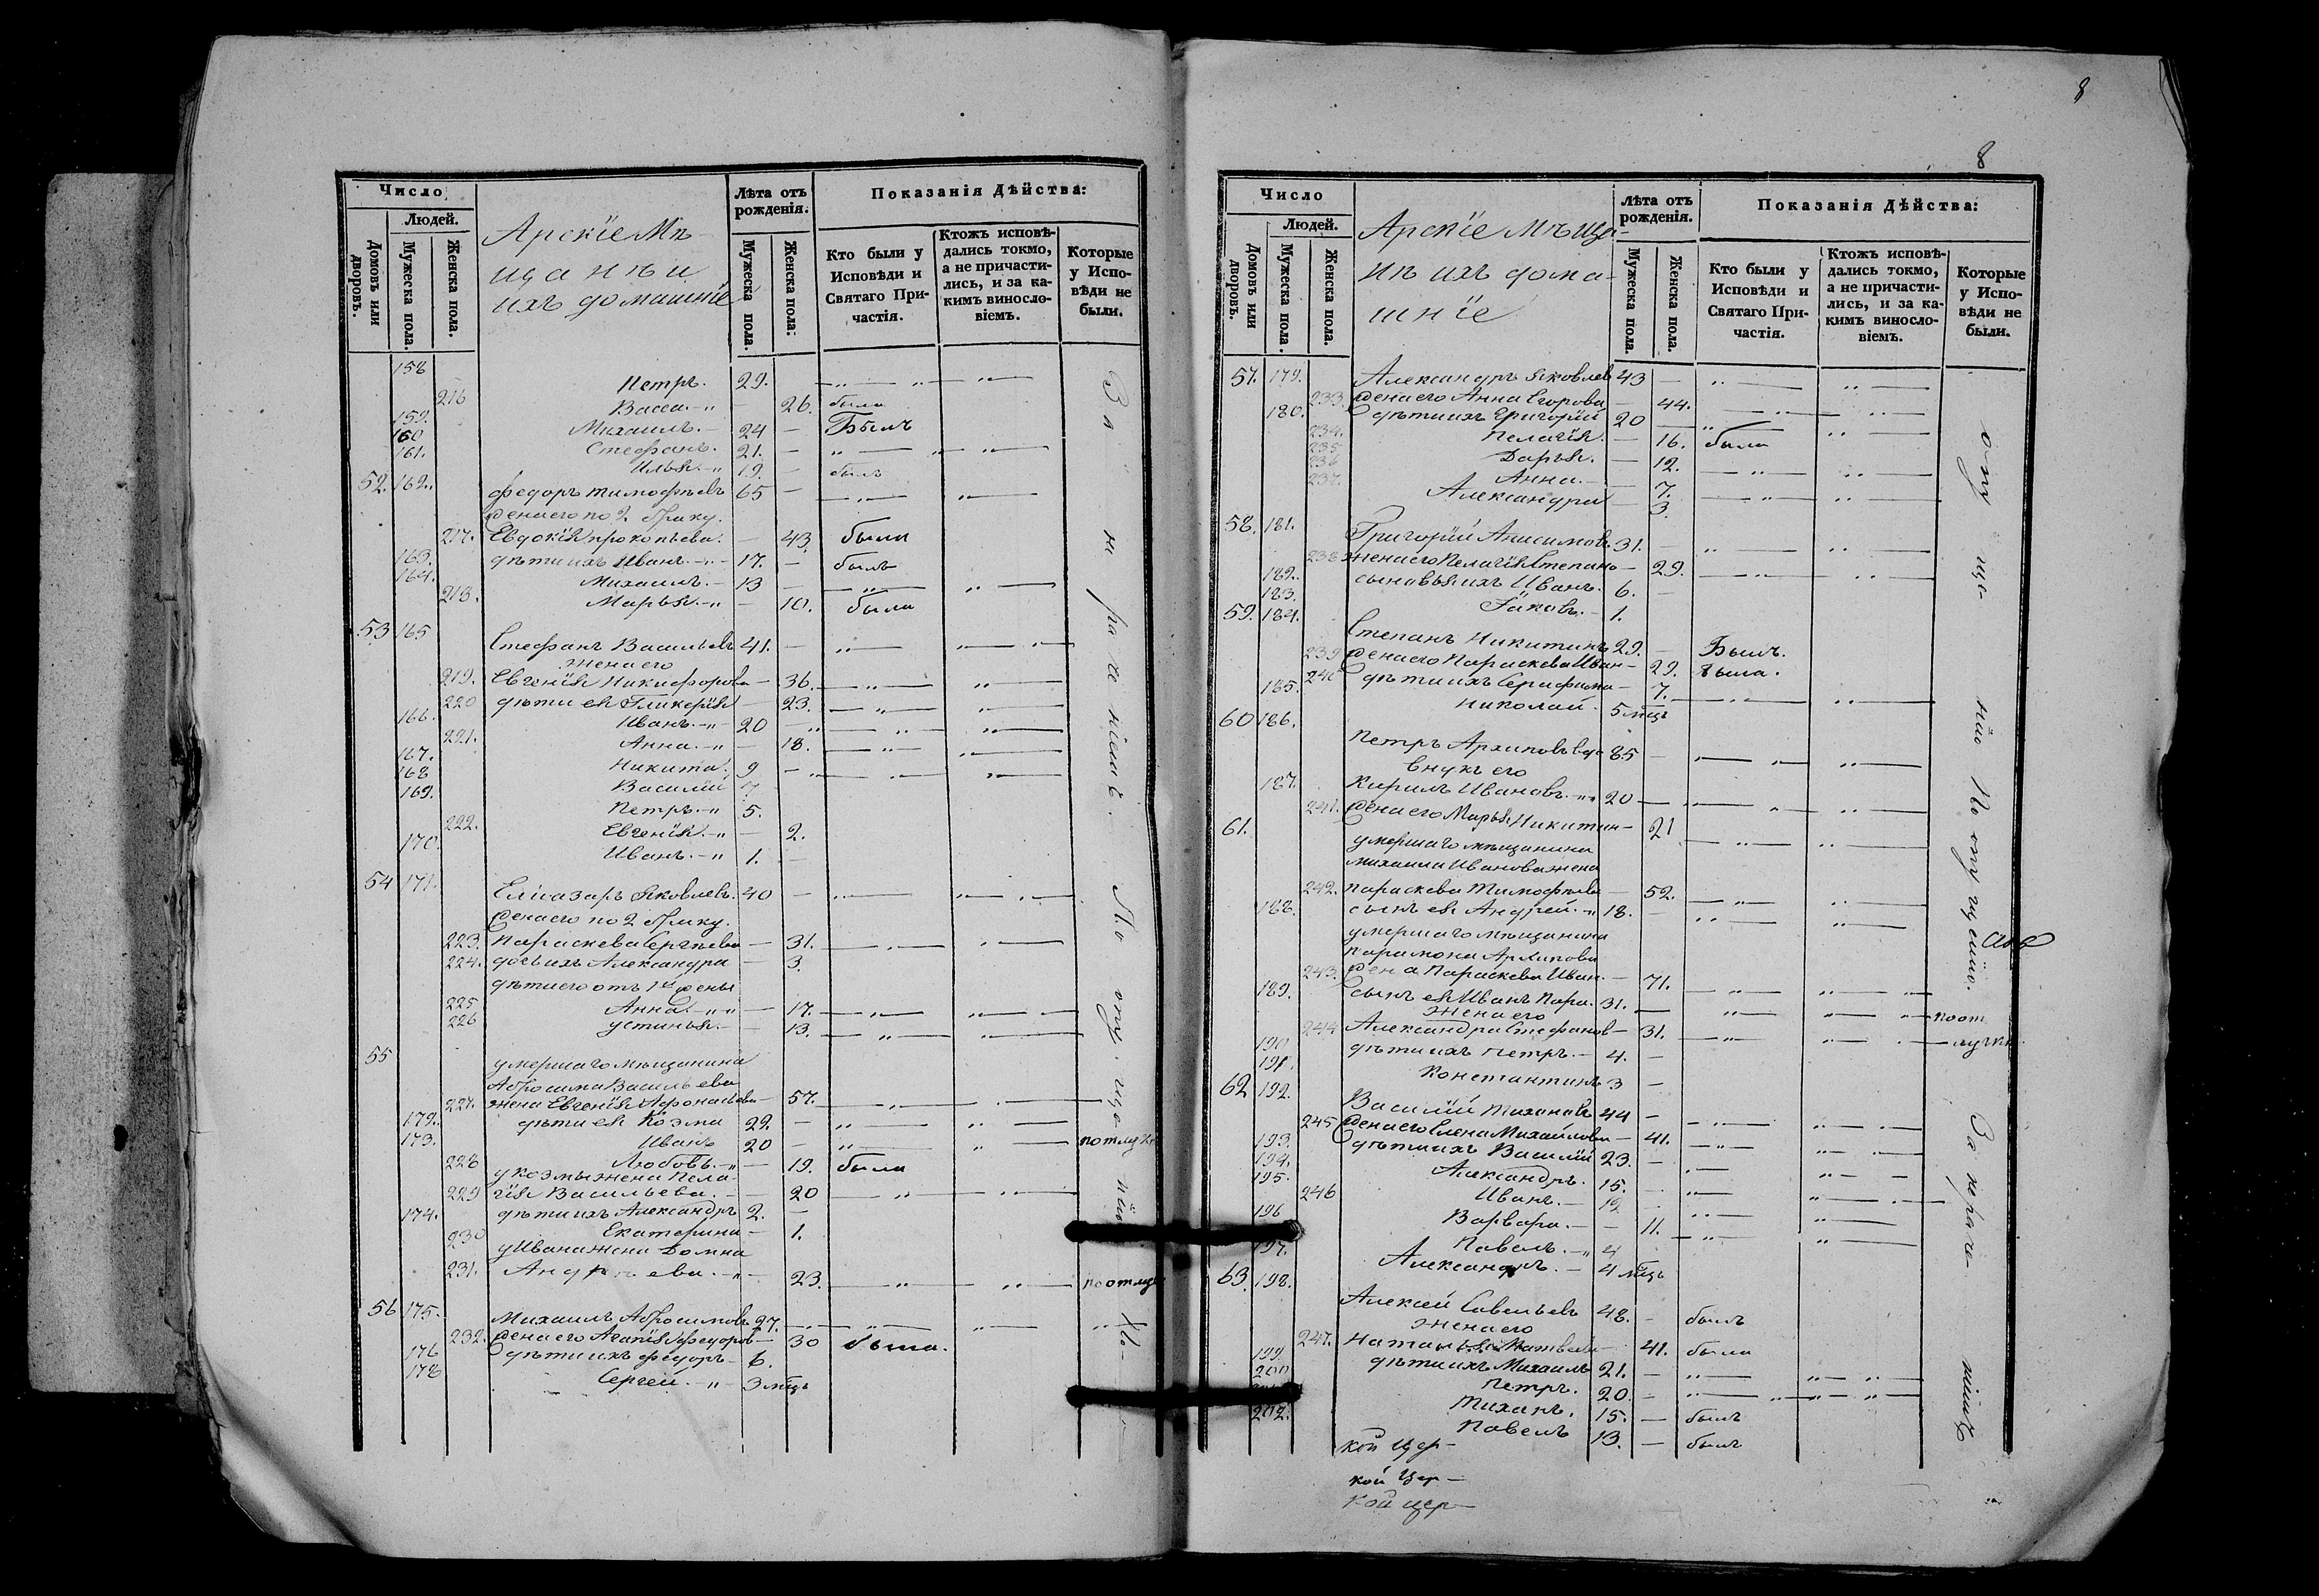 Число
Людей.
Домовъ или дворовъ.
Мужеска пола.
Женска пола.
Арскіе Мѣ-
щанѣ и
ихъ домашніе
Лѣта отъ рожденія.
Мужеска пола.
Женска пола.
Показанія Дѣйства:
Кто были у Исповѣди и Святаго Причастія.
Ктожъ исповѣдались токмо, а не причастились, и за какимъ винословіемъ.
Которые у Исповѣди не были.
158 Петръ. 29.
216 Васса. 26. была
159. Михаилъ. 24 Былъ
160 Стефанъ. 21.
161. Илья. 19. былъ
52. 162. Федоръ Тимофѣевъ 65
жена его по 2 браку.
217. Евдокія Прокопьева. 43. была
163. дѣти ихъ Иванъ. 17. былъ
164. Михаилъ. 13
218. Марья. 10. была
53 165 Стефанъ Васильевъ 41.
жена его
219. Евгенія Никифорова 36.
220 дѣти ея Гликерія 23.
166. Иванъ. 20
221. Анна. 18.
167. Никита. 9
168 Василій 7
169. Петръ. 5.
222. Евгенія. 2.
170. Иванъ. 1.
54 171. Еліазаръ Яковлевъ. 40
жена его по 2 браку.
223. Параскева Сергѣева 31.
224. дочь ихъ Александра 3.
дѣти его отъ 1й жены
225 Анна. 17.
226 Устинья. 13.
55 умершаго мѣщанина
Абросима Васильева
227. жена Евгенія Афонасьева 57.
172. дѣти ея Козма 22.
173. Иванъ 20
228 Любовь. 19. была
у Козмы жена Пела-
229 гія Васильева. 20
174. дѣти ихъ Александръ 2.
230 Екатерина 1.
у Ивана жена Домна
231. Андреева. 23. по отлуч
56 175. Михаилъ Абросимовъ 27.
232. жена его Агапія Федоров 30 была.
176 дѣти ихъ Федоръ 6.
178 Сергей. 3 мѣц
За нераченіемъ. По опущенію
Число
Людей.
Домовъ или дворовъ.
Мужеска пола.
Женска пола.
8
8
Арскіе Мѣща-
нѣ ихъ дома-
шніе
Лѣта отъ рожденія.
Мужеска пола.
Женска пола.
Показанія Дѣйства:
Кто были у Исповѣди и Святаго Причастія.
Ктожъ исповѣдались токмо, а не причастились, и за какимъ винословіемъ.
Которые у Исповѣди не были.
57. 179. Александръ Яковлев 43
233. жена его Анна Егорова 44.
180. дѣти ихъ Григорій 20
234. Пелагія. 16. была
235 Дарья. 12.
236 Анна. 7.
237. Александра 3.
58. 181. Григорій Анисимов. 31.
238 жена его Пелагія Степано 29.
182. сыновья ихъ Иванъ. 6.
183. Іаковъ. 1.
59. 184. Степанъ Никитинъ 29. Былъ.
239 жена его Параскева Иван 29. была.
240 дѣти ихъ Серафима 7.
185. Николай 5 мѣц
60 186. Петръ Архиповъ вдо 85
внукъ его
187. Кирилъ Ивановъ. 20
241. жена его Марья Никитин 21
61. умершаго мѣщанина
Михаила Иванова жена
242. Параскева Тимофѣева 52.
188. сынъ ея Андрей. 18.
умершаго мѣщанина
Парамона Архипова
243. жена Параскева Иван. 71.
189. сынъ ея Иванъ Пара. 31. по от
жена его
244 Александра Стефанов 31. лучкѣ
190 дѣти ихъ Петръ. 4.
191. Константинъ 3
62 192. Василій Тихоновъ 44
245 жена его Елена Михайлова 41.
193. дѣти ихъ Василій 23.
194. Александръ. 15.
195. Иванъ. 12
246 Варвара. 11.
196 Павелъ. 4
197. Александръ. 4 мѣц
63. 198. Алексѣй Савельевъ 48. былъ
жена его
247. Наталья Матвеев 41. была
199. дѣти ихъ Михаилъ 21.
200 Петръ. 20.
Тиханъ. 15. былъ
202. Павелъ 13. былъ
опущенію По опущенію. За нераченіемъ
кой цер-
кой цер-
кой цер-